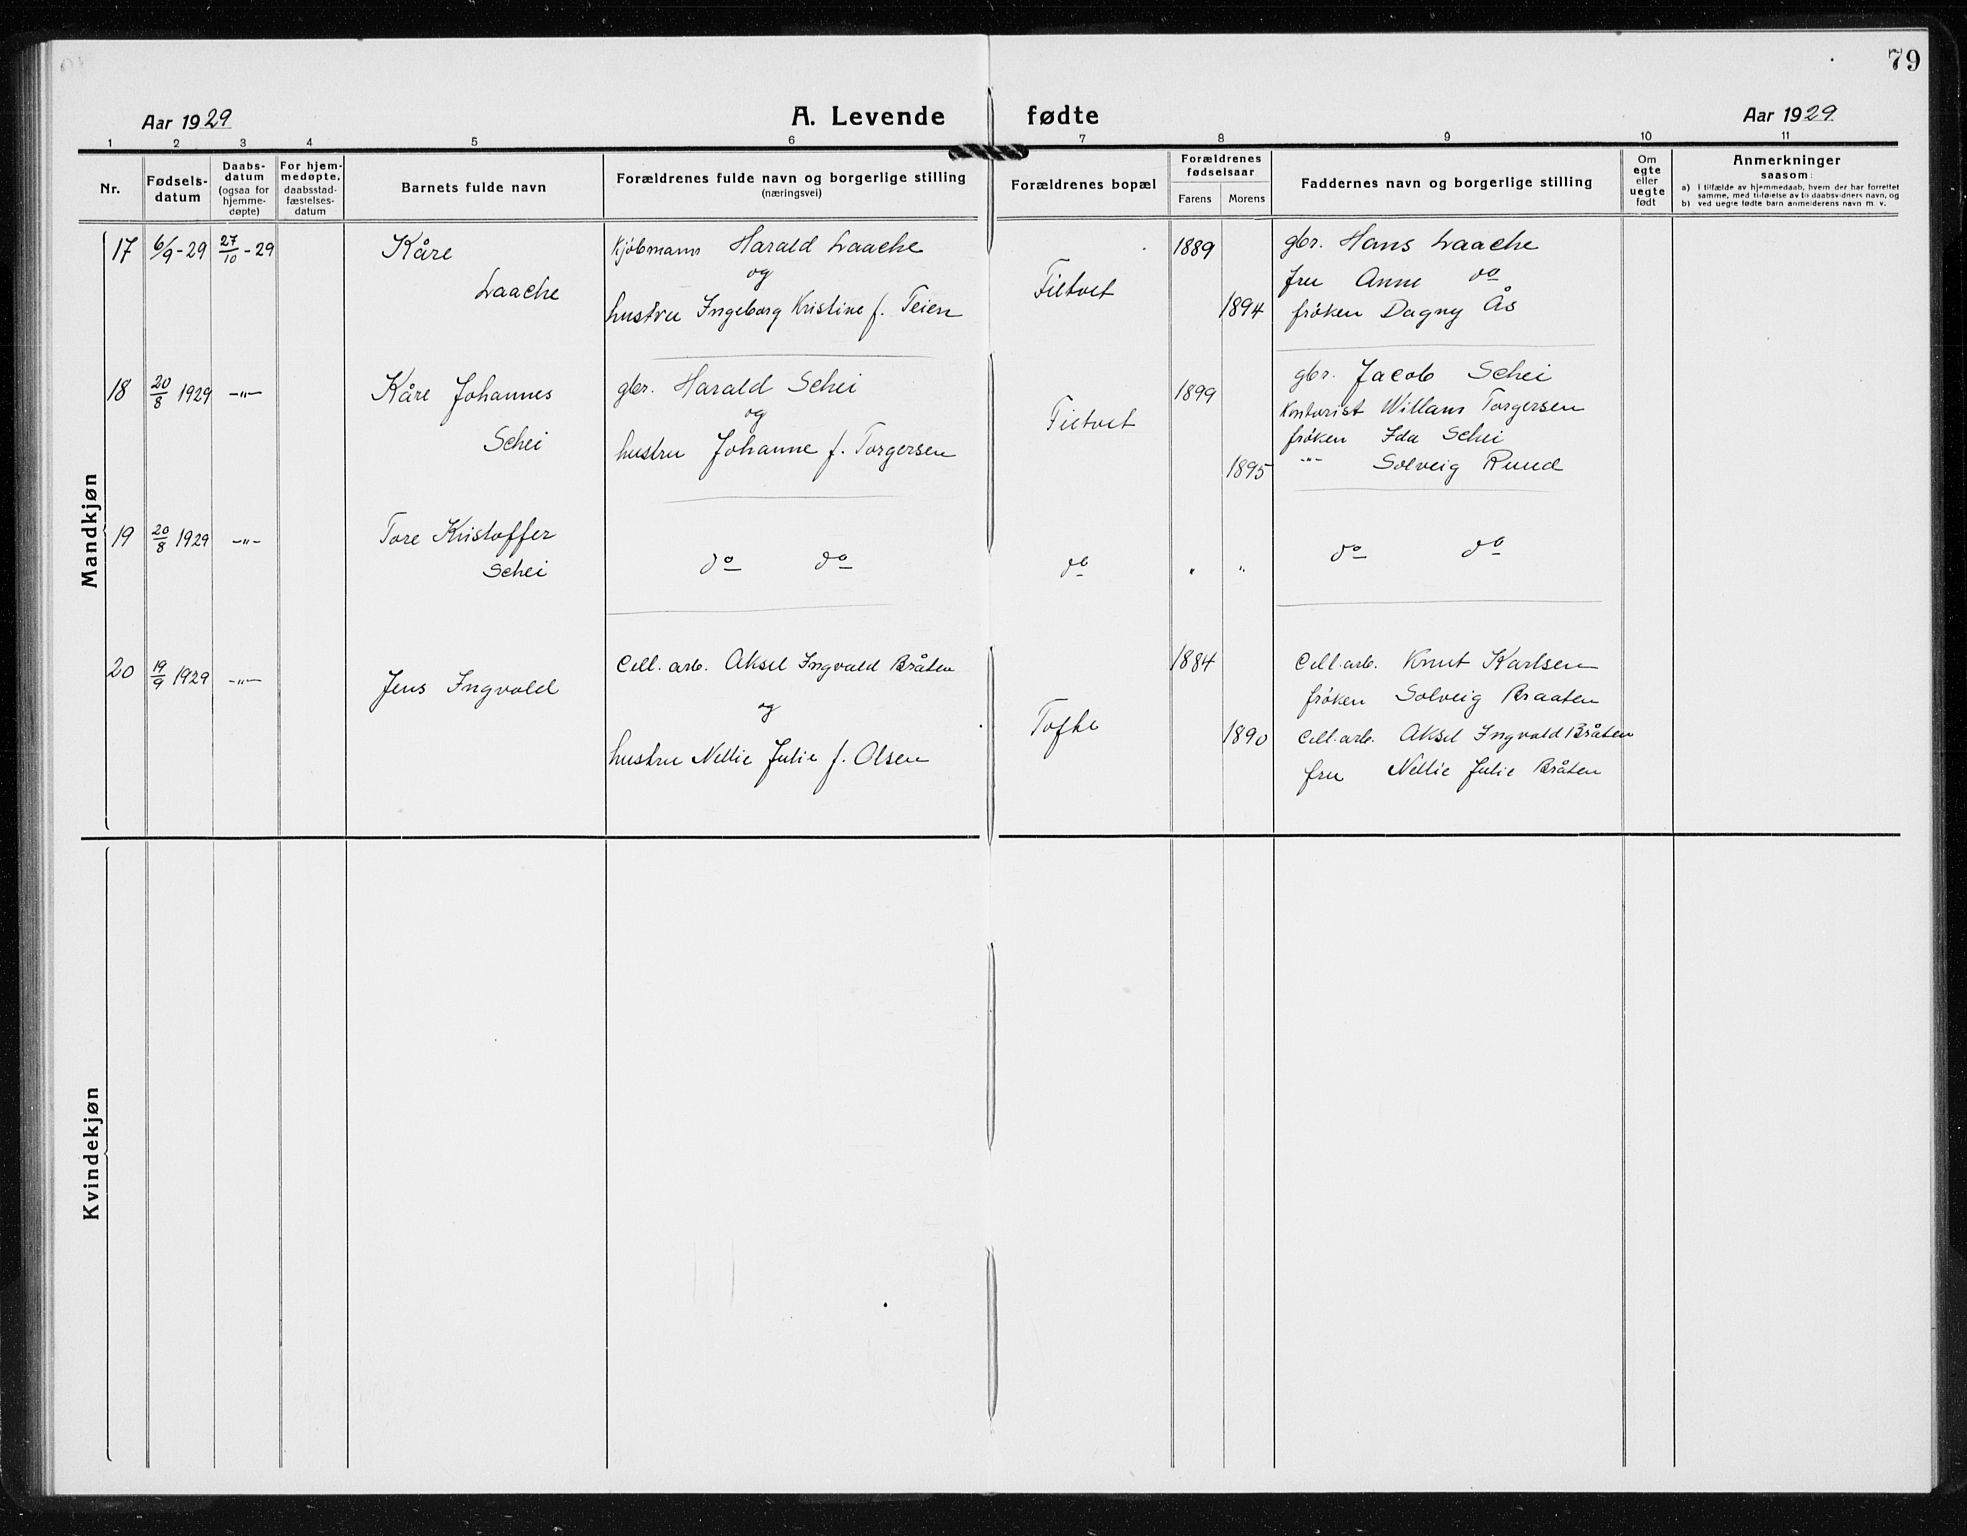 79
Aar 1929
A. Levende fødte
Aar 1929
1 2 3 4 5 6 7 8 9 10 11
Nr.
Fødsels-
datum
Daabs-
datum
(ogsaa for
hjemme-
døpte)
For hjem-
medøpte,
daabsstad-
fæstelses-
datum
Barnets fulde navn
Forældrenes fulde navn og borgerlige stilling
(næringsvei)
Forældrenes bopæl
Forældrenes
fødselsaar
Farens Morens
Faddernes navn og borgerlige stilling
Om
egte
eller
uegte
født
Anmerkninger
saasom:
a) i tilfælde av hjemmedaab, hvem der har forrettet
samme, med tilføielse av to daabsvidners navn, og
b) ved uegte fødte barn anmelderens navn m. v.
Mandkjøn
17 6/9-29 27/10-29
Kåre
Laache
Kjøbmann Harald Laache
og
hustru Ingeborg Kristine f. Teien
Filtvet
1889
1894
gbr. Hans Laache
fru Anne do
frøken Dagny Ås
18 20/8 1929 -"-
Kåre Johannes
Schei
gbr. Harald Schei
og
hustru Johanne f. Torgersen
Filtvet
1899
1895
gbr. Jacob Schei
Kontorist Torgersen
frøken Ida Schei
-"- Solveig Ruud
19 20/8 1929 -"-
Tore Kristoffer
Schei
do do
do
" "
do do
20 19/9 1929 -"-
Jens Ingvald
Cell. arb. Aksel Ingvald Bråten
og
hustru Nellie Julie f. Olsen
Tofte
1884
1890
Cell. arb. Knut Karlsen
frøken Solveig Braaten
Cell. arb. Aksel Ingvald Bråten
fru Nellie Julie Bråten
Kvindekjøn